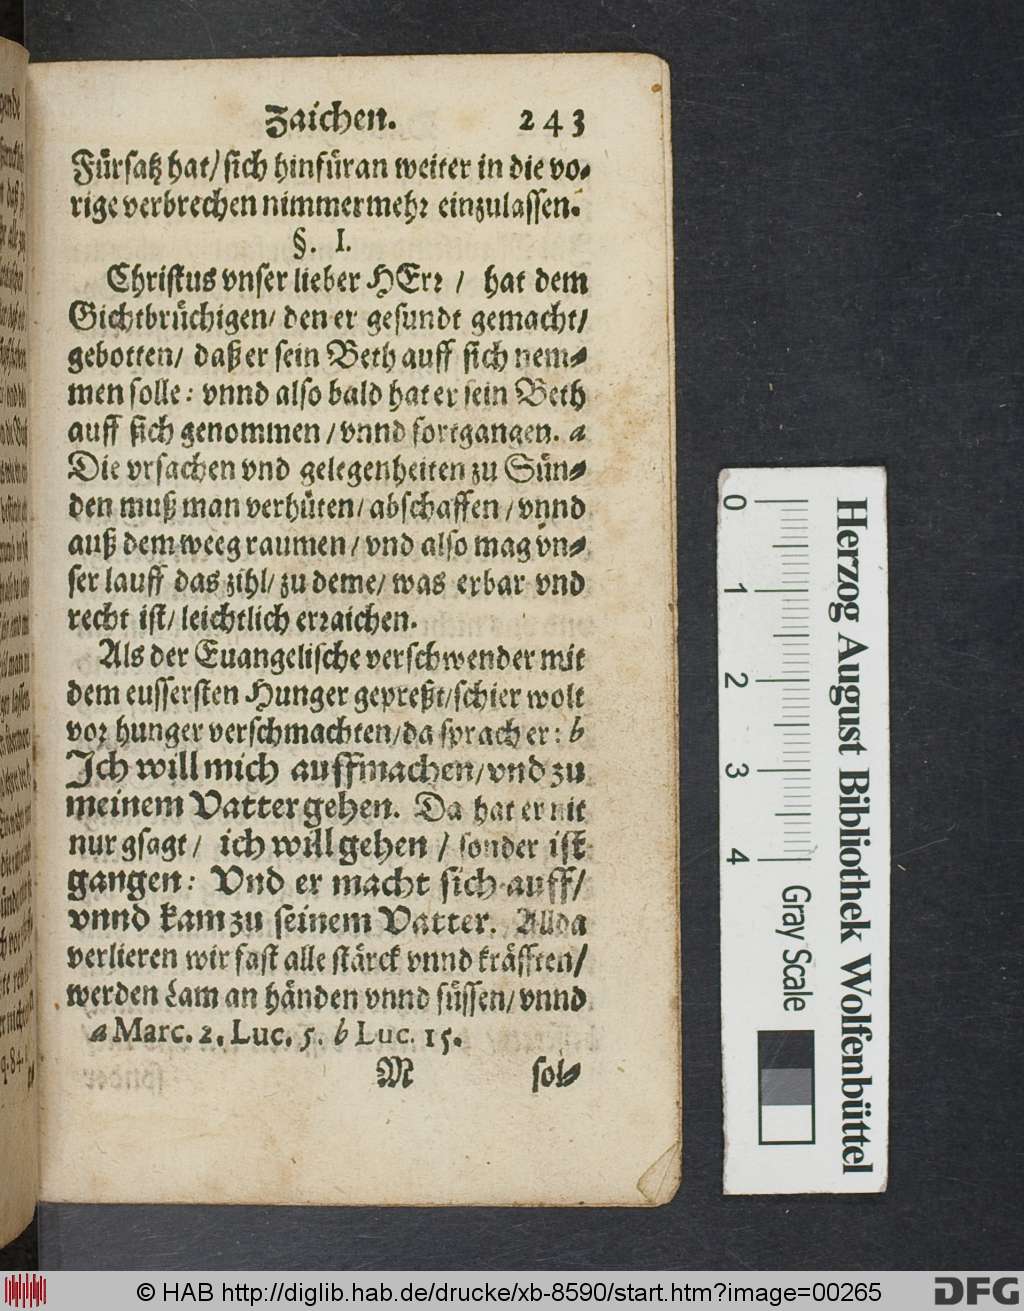 Zaichen. 243
Fürsatz hat/ sich hinfüran weiter in die vo-
rige verbrechen nimmermehr einzulassen.
§. I.
Christus vnser lieber HErr / hat dem
Gichtbrüchigen/ den er gesundt gemacht/
gebotten/ daß er sein Beth auff sich nem-
men solle: vnnd also bald hat er sein Beth
auff sich genommen / vnnd fortgangen. a
Die vrsachen vnd gelegenheiten zu Sün-
den muß man verhüten/ abschaffen / vnnd
auß dem weeg raumen / vnd also mag vn-
ser lauff das zihl/ zu deme/ was erbar vnd
recht ist/ leichtlich erraichen.
Als der Euangelische verschwender mit
dem eussersten Hunger gepreßt/ schier wolt
vor hunger verschmachten/ da sprach er: b
Ich will mich auffmachen/ vnd zu
meinem Vatter gehen. Da hat er nit
nur gsagt/ ich will gehen / sonder ist
gangen: Vnd er macht sich auff/
vnnd kam zu seinem Vatter. Allda
verlieren wir fast alle stärck vnnd kräfften/
werden Lam an händen vnnd füssen/ vnnd
a Marc. 2. Luc. 5. b Luc. 15.
M sol-
0 1 2 3 4
Gray Scale
Herzog August Bibliothek Wolfenbüttel
© HAB http://diglib.hab.de/drucke/xb-8590/start.htm?image=00265
DFG